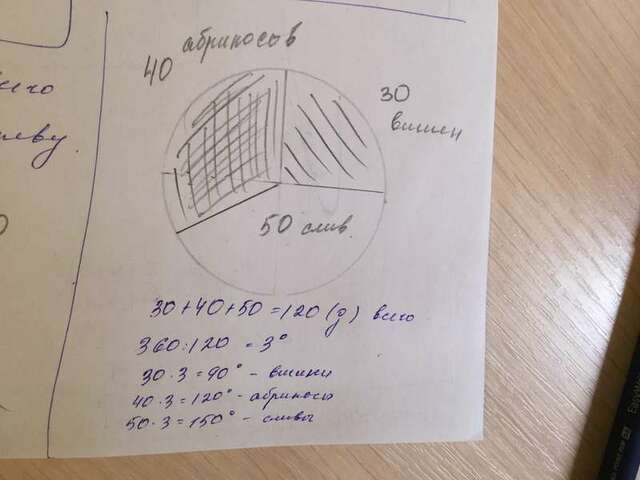 абрикосов
40
30
вишен
50 слив.
30+40+50=120 (д) всего
360:120 = 3°
30·3=90° - вишни
40·3=120° - абрикосы
50·3=150° - сливы